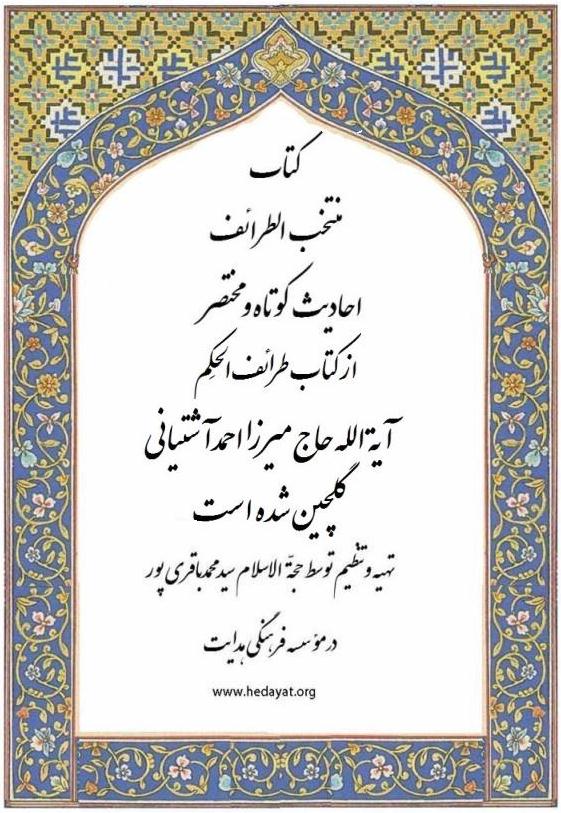 کتاب
منتخب الطرائف
احادیث کوتاه و مختصر
از کتاب طرائف الحِکم
آیة الله حاج میرزا احمد آشتیانی
گلچین شده است
تهیه و تنظیم توسط حجّة الاسلام سید محمد باقری پور
در مؤسسه فرهنگی هدایت
www.hedayat.org